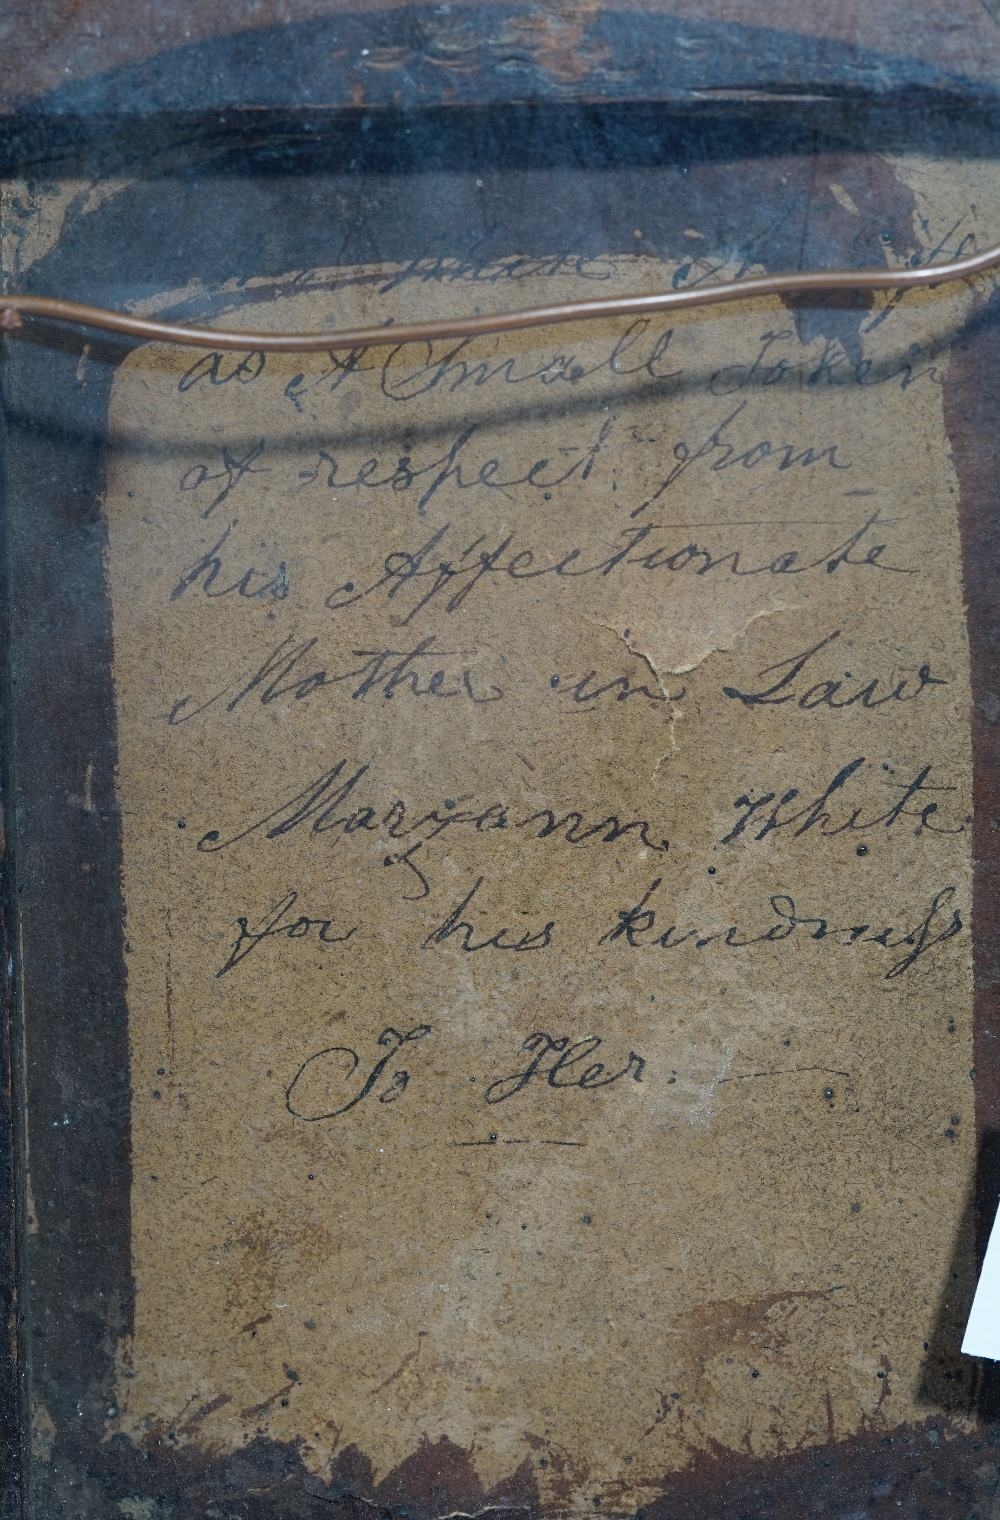 White
as A Small Token
of respect from
his Affectionate
Mother in Law
Maryann White
for his kindness
To Her.